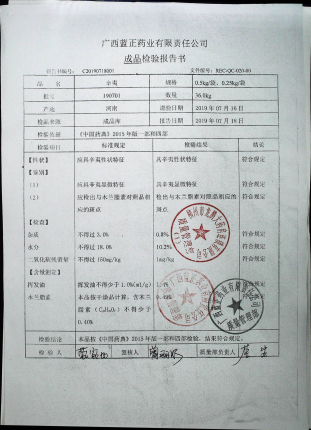 广西蓝正药业有限责任公司
成品检验报告书
报告书编号: C20190718001 文件编号: REC-QC-020-60
品 名 辛夷 规格 0.5kg/袋、0.25kg/袋
批号 190701 数量 36.0kg
产地 河南 检验日期 2019年07月16日
检品来源 成品库 报告日期 2019年07月18日
检验依据 《中国药典》2015年版一部和四部
检验项目 标准规定 检验结果 结论
【性状】 应具辛夷性状特征 具辛夷性状特征 符合规定
【鉴别】
(1) 应具辛夷显微特征 具辛夷显微特征 符合规定
(2) 应检出与木兰脂素对照品相应的斑点 检出与木兰脂素对照品相应的斑点 符合规定
【检查】
杂质 不得过5.0% 0.8% 符合规定
水分 不得过18.0% 10.2% 符合规定
二氧化硫残留量 不得过150mg/kg mg/kg 符合规定
【含量测定】
挥发油 挥发油不得少于1.0%(ml/g) 符合规定
木兰脂素 本品按干燥品计算,含木兰脂素 不得少于0.40% 符合规定
结论 本品按《中国药典》2015年版一部和四部检验,结果符合规定。
检验人 复核人 质量部负责人